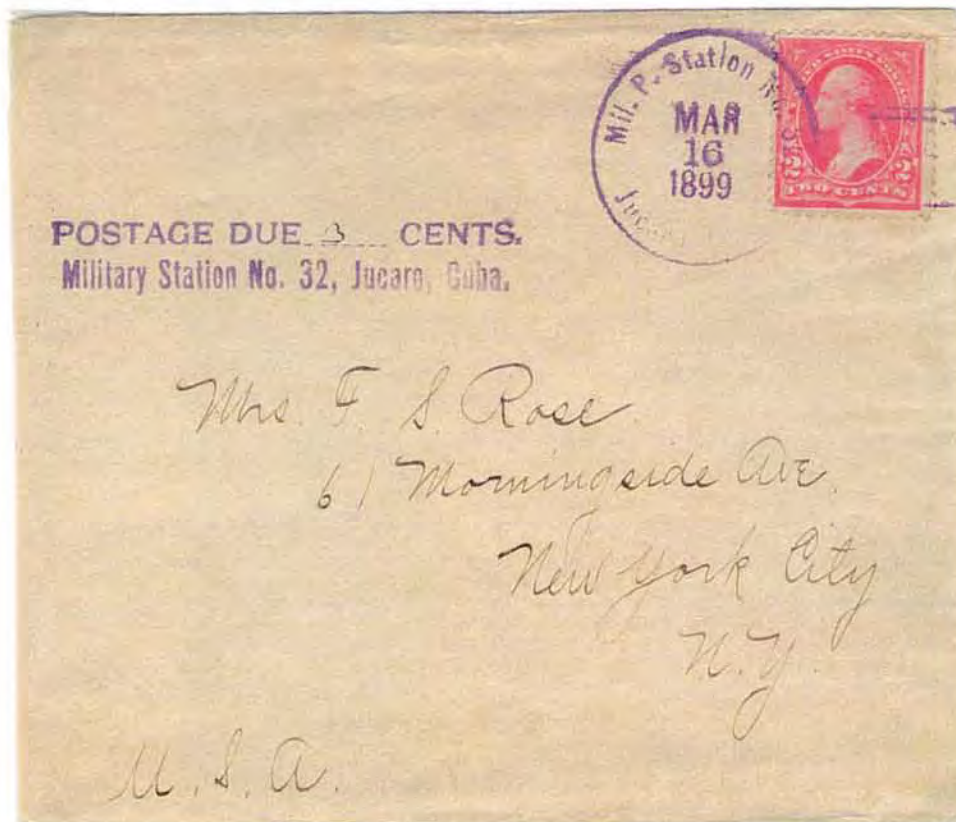 Mil. P. Station No.
MAR
16
1899
UNITED STATES
2 2
TWO CENTS
POSTAGE DUE 3 CENTS.
Military Station No. 32, Jucaro, Cuba.
Mrs. F. S. Rose
61 Morningside Ave.
New York City
N.Y.
U.S.A.